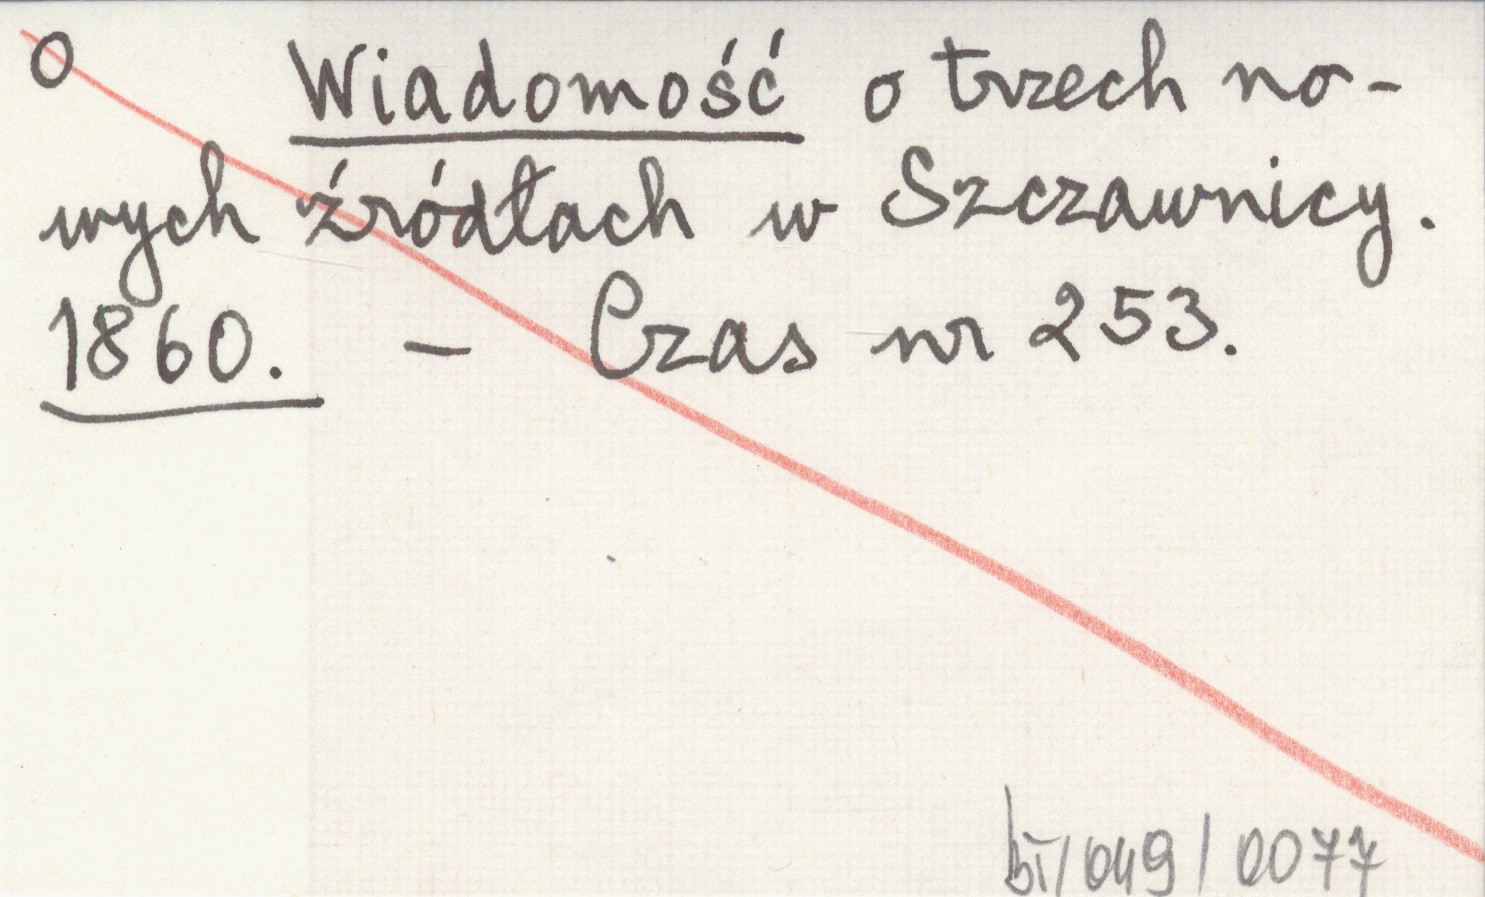 O Wiadomość o trzech no-
wych źródłach w Szczawnicy.
1860. – Czas nr 253.
bī/049/0077